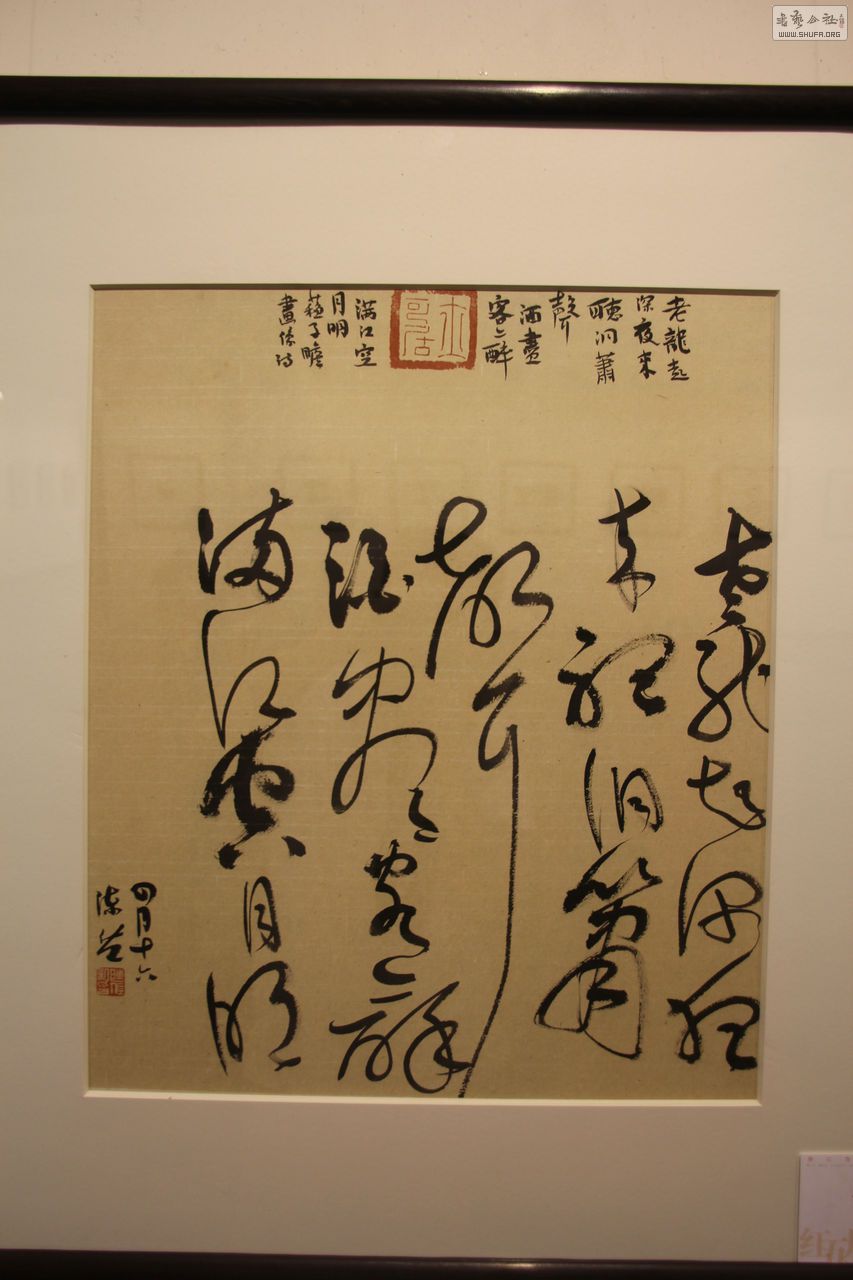 書藝公社
WWW.SHUFA.ORG
老龍起
深夜來
聽洞蕭
聲
酒盡
客二醉
滿江空
月明
蘇子瞻
畫依詩
老龍起深夜
來聽洞簫
聲
酒盡客醉
滿江空月明
四月十六